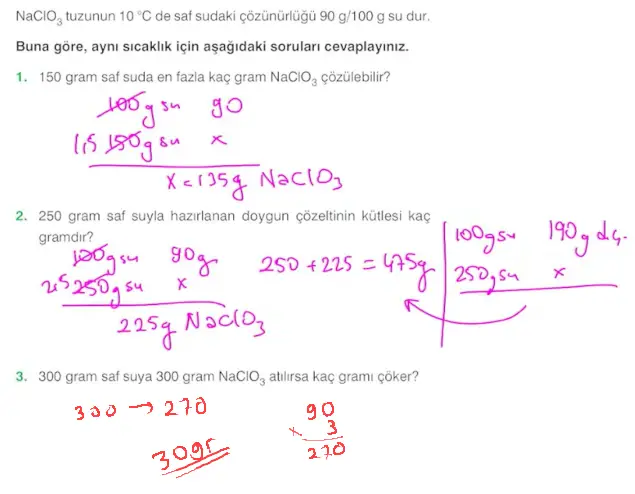 NaClO₃ tuzunun 10 °C de saf sudaki çözünürlüğü 90 g/100 g su dur.
Buna göre, aynı sıcaklık için aşağıdaki soruları cevaplayınız.
1. 150 gram saf suda en fazla kaç gram NaClO₃ çözülebilir?
100 g su 90
1,5 150 g su x
x = 135 g NaClO₃
2. 250 gram saf suyla hazırlanan doygun çözeltinin kütlesi kaç
gramdır?
100 g su 90 g
2,5 250 g su x
225 g NaClO₃
250 + 225 = 475 g
100 g su 190 g d.ç.
250 g su x
3. 300 gram saf suya 300 gram NaClO₃ atılırsa kaç gramı çöker?
300 → 270
30 gr
90
x 3
270